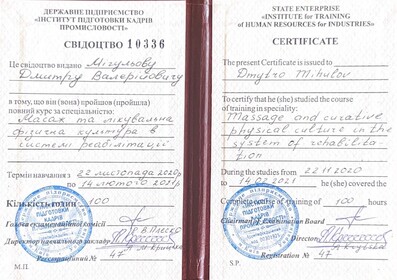 ДЕРЖАВНЕ ПІДПРИЄМСТВО
«ІНСТИТУТ ПІДГОТОВКИ КАДРІВ
ПРОМИСЛОВОСТІ»
СВІДОЦТВО 10336
Це свідоцтво видано Мігульову
Дмитру Валерійовичу
в тому, що він (вона) пройшов (пройшла)
повний курс за спеціальністю:
Масаж та лікувальна
фізична культура в
системі реабілітації
Термін навчання з 22 листопада 2020р
по 14 лютого 2021р
Кількість годин 100
Голова екзаменаційної комісії
Директор навчального закладу
Реєстраційний № 47
М.П.
STATE ENTERPRISE
«INSTITUTE for TRAINING
of HUMAN RESOURCES for INDUSTRIES»
CERTIFICATE
The present Certificate is issued to
Dmytro Mihulov
To certify that he (she) studied the course
of training in speciality:
Massage and curative
physical culture in the
system of rehabilita-
tion
During the studies from 22.11.2020
to 14.02.2021 he (she) covered the
Complete course of training of 100 hours
Chairman of Examination Board
Director
Registration № 47
S.P.